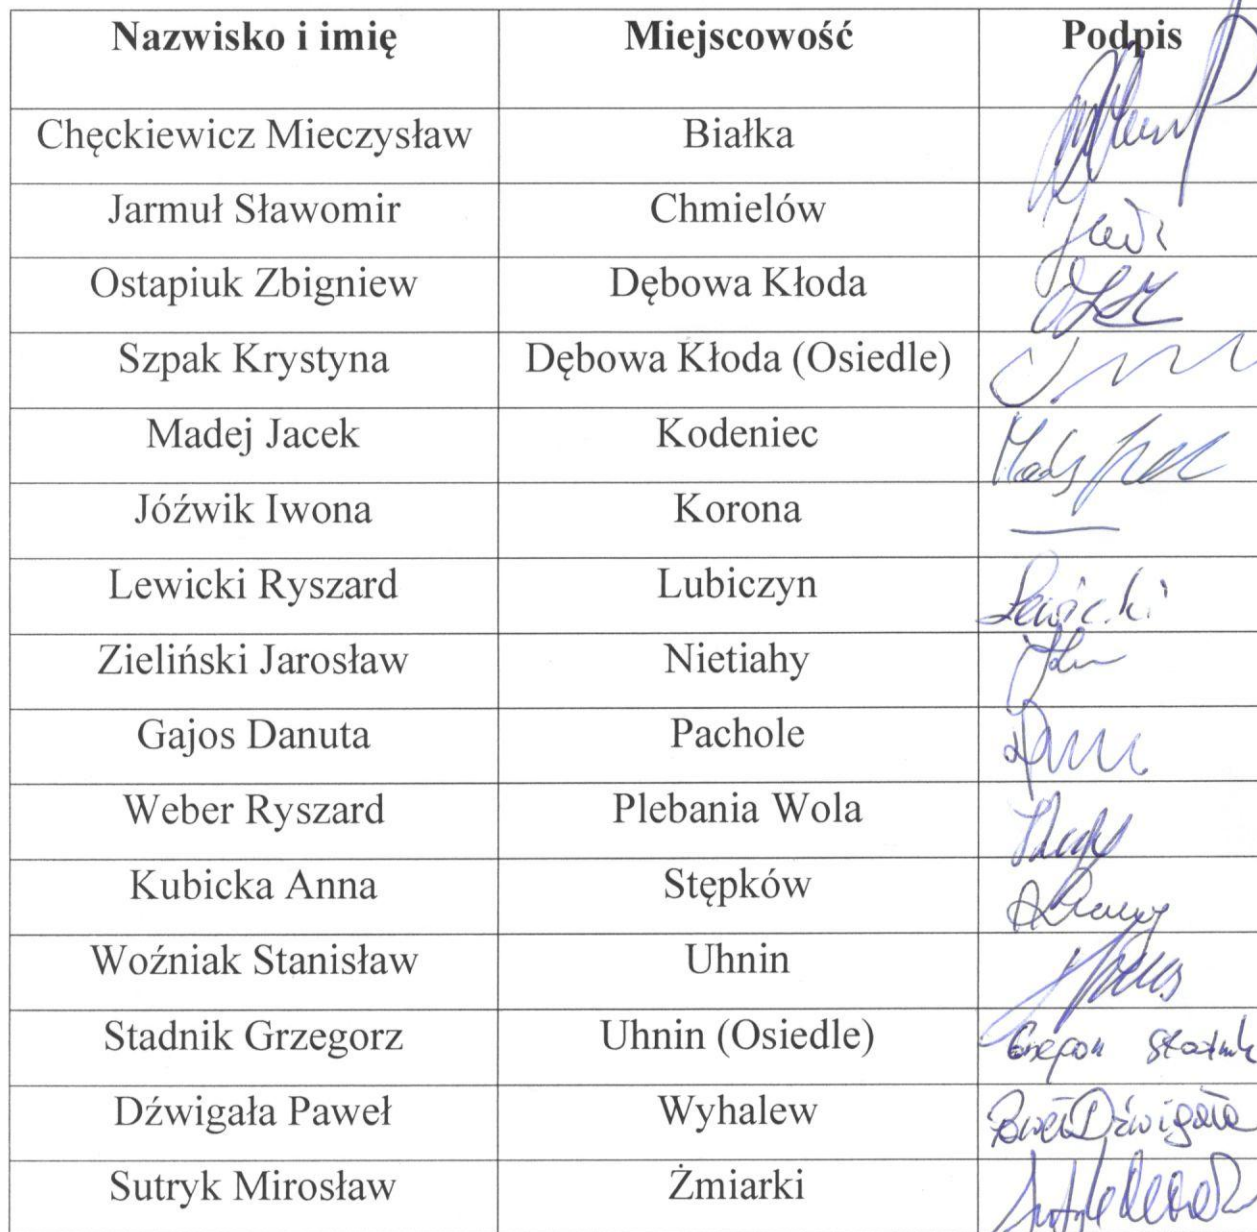 Nazwisko i imię Miejscowość Podpis
Chęckiewicz Mieczysław Białka
Jarmuł Sławomir Chmielów
Ostapiuk Zbigniew Dębowa Kłoda
Szpak Krystyna Dębowa Kłoda (Osiedle)
Madej Jacek Kodeniec
Jóźwik Iwona Korona —
Lewicki Ryszard Lubiczyn Lewicki
Zieliński Jarosław Nietiahy
Gajos Danuta Pachole
Weber Ryszard Plebania Wola
Kubicka Anna Stępków
Woźniak Stanisław Uhnin
Stadnik Grzegorz Uhnin (Osiedle) Stadnik
Dźwigała Paweł Wyhalew Paweł Dźwigała
Sutryk Mirosław Żmiarki